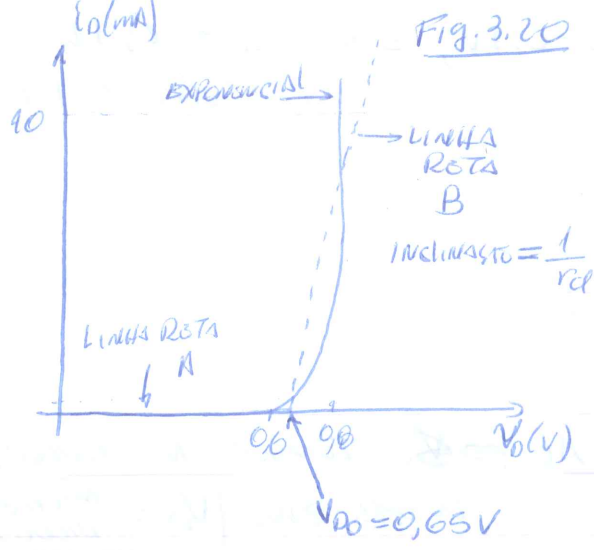 iD(mA)
Fig. 3.20
EXPONENCIAL
10
LINHA
RETA
B
INCLINAÇÃO = 1/rd
LINHA RETA
A
0,6
0,8
VD(V)
VD0 = 0,65V